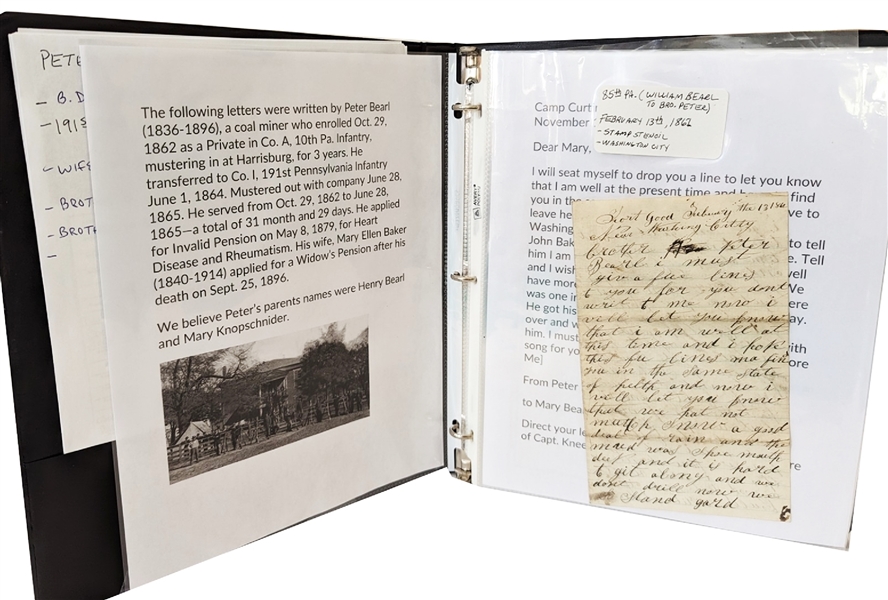 PETE
- B.D
- 1918
- WIFE
- BROT
- BROTH
-
The following letters were written by Peter Bearl
(1836-1896), a coal miner who enrolled Oct. 29,
1862 as a Private in Co. A, 10th Pa. Infantry,
mustering in at Harrisburg, for 3 years. He
transferred to Co. I, 191st Pennsylvania Infantry
June 1, 1864. Mustered out with company June 28,
1865. He served from Oct. 29, 1862 to June 28,
1865—a total of 31 month and 29 days. He applied
for Invalid Pension on May 8, 1879, for Heart
Disease and Rheumatism. His wife, Mary Ellen Baker
(1840-1914) applied for a Widow's Pension after his
death on Sept. 25, 1896.
We believe Peter's parents names were Henry Bearl
and Mary Knopschnider.
85th PA. (WILLIAM BEARL
TO BRO. PETER)
- FEBRUARY 13th, 1862
- STAMP STENCIL
- WASHINGTON CITY
Camp Curt
November
Dear Mary,
I will seat myself to drop you a line to let you know
that I am well at the present time and find
you in the
leave he ve to
Washing
John Bak to tell
him I am e. Tell
and I wish well
have more We
was one in ere
He got his ay.
over and w
him. I must with
song for yo ore
Me]
From Peter
to Mary Bea
Direct your le re
of Capt. Knee
Good Febuary the 13 186
Near Washing Citty
brother Peter
Bearl i must
giv a fue lines
to you for you dont
writ to me now i
will let you know
that i am well at
this time and i hope
this fu lines ma fin
you in the same state
of helth and now i
will let you know
that we hat not
mutch snow a good
deal of rain and the
mud was shoe mouth
deep and it is hard
to git along and we
dont drill now we
stand gard